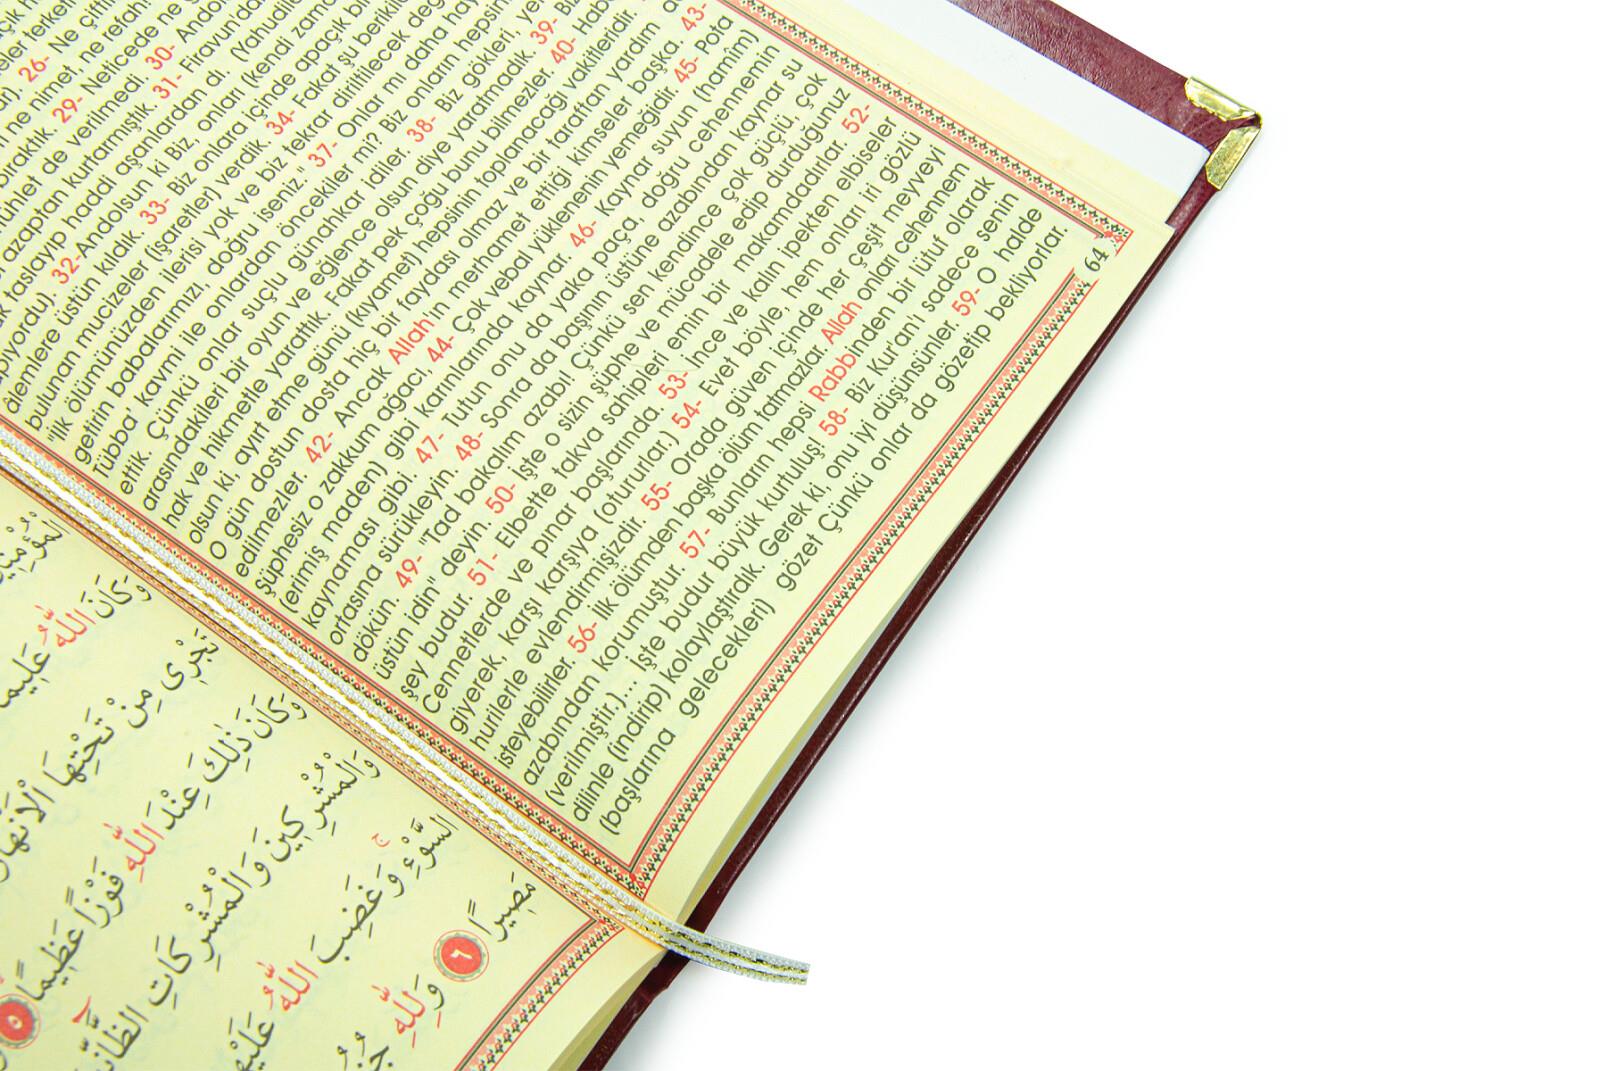 26- Ne
ne nimet, ne refah!
29- Neticede ne
mühlet de verilmedi. 30-
azaptan kurtarmıştık. 31- Firavun'da
taslayıp haddi aşanlardan dı. (Yahudile
32-Andolsun ki Biz, onları (kendi zama
âlemlere üstün kıldık. 33- Biz onlara içinde apaçık bi
bulunan mucizeler (işaretler) verdik. 34- Fakat şu berikile
"İlk ölümümüzden ilerisi yok ve biz tekrar diriltilecek değ
getirin babalarımızı, doğru iseniz." 37- Onlar mı daha hay
Tübba' kavmi ile onlardan öncekiler mi? Biz onların hepsin
ettik. Çünkü onlar suçlu günahkar idiler. 38- Biz gökleri, ye
arasındakileri bir oyun ve eğlence olsun diye yaratmadık. 39- Bi
hak ve hikmetle yarattık. Fakat pek çoğu bunu bilmezler. 40- Habe
olsun ki, ayırt etme günü (kıyamet) hepsinin toplanacağı vakitleridir.
O gün dostun dosta hiç bir faydası olmaz ve bir taraftan yardım
edilmezler. 42- Ancak Allah'ın merhamet ettiği kimseler başka. 43-
şüphesiz o zakkum ağacı, 44- Çok vebal yüklenenin yemeğidir. 45- Pota
(erimiş maden) gibi karınlarında kaynar. 46- Kaynar suyun (hamîm)
kaynaması gibi. 47- Tutun onu da yaka paça, doğru cehennemin
ortasına sürükleyin. 48- Sonra da başının üstüne azabından kaynar su
dökün. 49- "Tad bakalım azabı! Çünkü sen kendince çok güçlü, çok
üstün idin" deyin. 50- İşte o sizin şüphe ve mücadele edip durduğunuz
şey budur. 51- Elbette takva sahipleri emin bir makamdadırlar. 52-
Cennetlerde ve pınar başlarında. 53- İnce ve kalın ipekten elbiseler
giyerek, karşı karşıya (otururlar.) 54- Evet böyle, hem onları iri gözlü
hurilerle evlendirmişizdir. 55- Orada güven içinde her çeşit meyveyi
isteyebilirler. 56- İlk ölümden başka ölüm tatmazlar. Allah onları cehennem
azabından korumuştur. 57- Bunların hepsi Rabbinden bir lütuf olarak
(verilmiştir.)... İşte budur büyük kurtuluş! 58- Biz Kur'an'ı sadece senin
dilinle (indirip) kolaylaştırdık. Gerek ki, onu iyi düşünsünler. 59- O halde
(başlarına gelecekleri) gözet Çünkü onlar da gözetip bekliyorlar.
64
وَكَانَ اللّٰهُ عَلِيمًا
تَجْرِى مِنْ تَحْتِهَا الْاَنْهَارُ
وَكَانَ ذٰلِكَ عِنْدَ اللّٰهِ فَوْزًا عَظِيمًا ٥
وَالْمُشْرِكِينَ وَالْمُشْرِكَاتِ الظَّانِّينَ
السَّوْءِ ج وَغَضِبَ اللّٰهُ عَلَيْهِمْ
مَصِيرًا ٦ وَلِلّٰهِ جُنُودُ